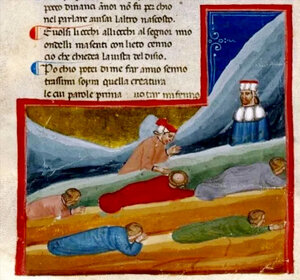 poco dinanci anoi no fu per chio
nel parlare auisai laltro nascosto.
E uolsi liocchi alliocchi al segnor mio
ondelli masenti con lieto cenno
cio che chiedea la uista del disio.
Po chio potei di me far amio senno
trassimi sopra quella creatura
le cui parole prima notar mi fenno